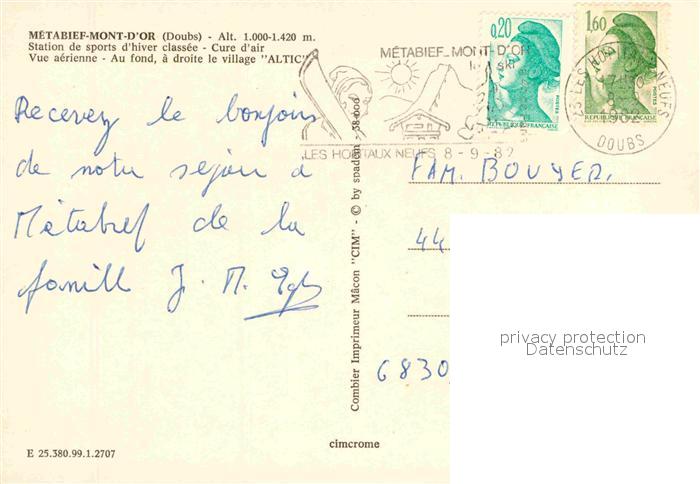 MÉTABIEF-MONT-D'OR (Doubs) - Alt. 1.000-1.420 m.
Station de sports d'hiver classée - Cure d'air
Vue aérienne - Au fond, à droite le village "ALTIC"
0,20
1,60
MÉTABIEF MONT-D'OR
ski
POSTES
RÉPUBLIQUE FRANÇAISE
RÉPUBLIQUE FRANÇAISE
25 LES HOPITAUX NEUFS
DOUBS
LES HOPITAUX NEUFS 8-9-82
Recevez le bonjour
de notre séjour à
Métabief de la
famille J. M.
FAM. BOUYER.
44
6830
Combier Imprimeur Mâcon "CIM" - © by spadem - 38-000
privacy protection
Datenschutz
cimcrome
E 25.380.99.1.2707